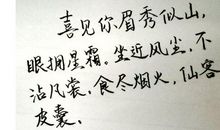 喜见你眉秀似山,
眼拥星霜。坐近风尘,不
沾风裳,食尽烟火,仙客
皮囊。